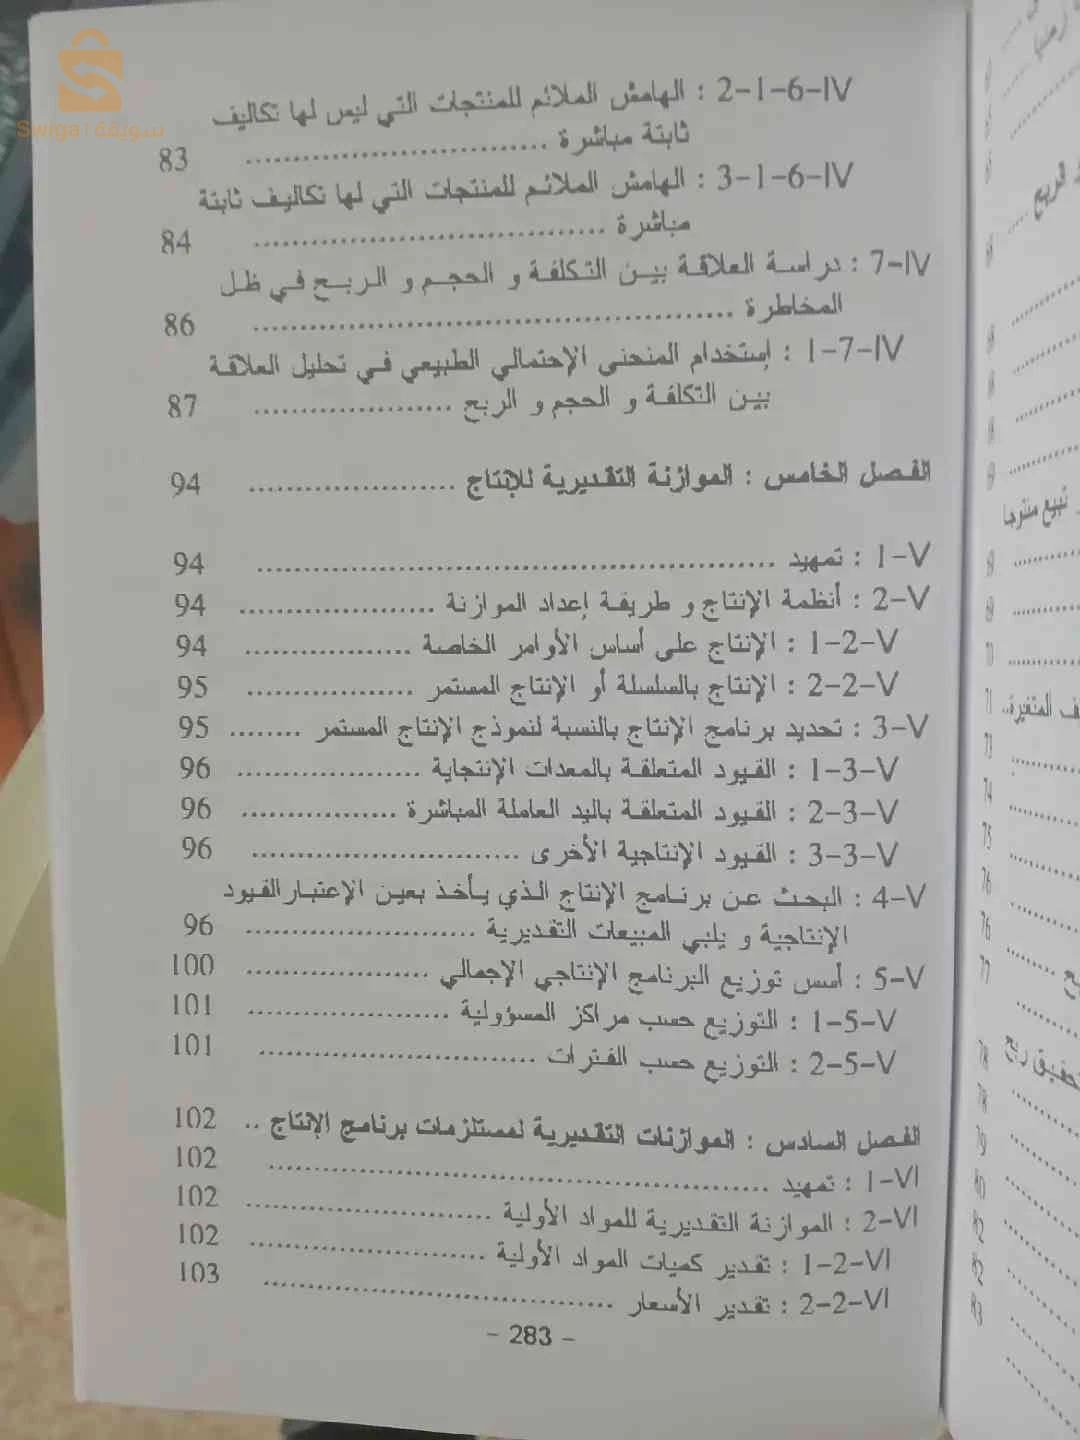 سويقة | Swiga
2-1-6-IV : الهامش الملائم للمنتجات التي ليس لها تكاليف
ثابتة مباشرة ................................ 83
3-1-6-IV : الهامش الملائم للمنتجات التي لها تكاليف ثابتة
مباشرة .................................... 84
7-IV : دراسة العلاقة بين التكلفة و الحجم و الربح في ظل
المخاطرة .................................................. 86
1-7-IV : إستخدام المنحنى الإحتمالي الطبيعي في تحليل العلاقة
بين التكلفة و الحجم و الربح ..................... 87
الفصل الخامس : الموازنة التقديرية للإنتاج ...................... 94
1-V : تمهيد ....................................................... 94
2-V : أنظمة الإنتاج و طريقة إعداد الموازنة ..................... 94
1-2-V : الإنتاج على أساس الأوامر الخاصة .................. 94
2-2-V : الإنتاج بالسلسلة أو الإنتاج المستمر .................. 95
3-V : تحديد برنامج الإنتاج بالنسبة لنموذج الإنتاج المستمر ........ 95
1-3-V : القيود المتعلقة بالمعدات الإنتجاية .................... 96
2-3-V : القيود المتعلقة باليد العاملة المباشرة ................. 96
3-3-V : القيود الإنتاجية الأخرى ............................. 96
4-V : البحث عن برنامج الإنتاج الذي يأخذ بعين الإعتبارالقيود
الإنتاجية و يلبي المبيعات التقديرية ......................... 96
5-V : أسس توزيع البرنامج الإنتاجي الإجمالي .................... 100
1-5-V : التوزيع حسب مراكز المسؤولية ...................... 101
2-5-V : التوزيع حسب الفترات .............................. 101
الفصل السادس : الموازنات التقديرية لمستلزمات برنامج الإنتاج .. 102
1-VI : تمهيد ..................................................... 102
2-VI : الموازنة التقديرية للمواد الأولية .......................... 102
1-2-VI : تقدير كميات المواد الأولية ......................... 102
2-2-VI : تقدير الأسعار ..................................... 103
- 283 -
الربح
تبيع منتوجا
69
70
71
المتغيرة..
73
74
75
76
76
77
78
تحقيق ربح
78
79
80
83